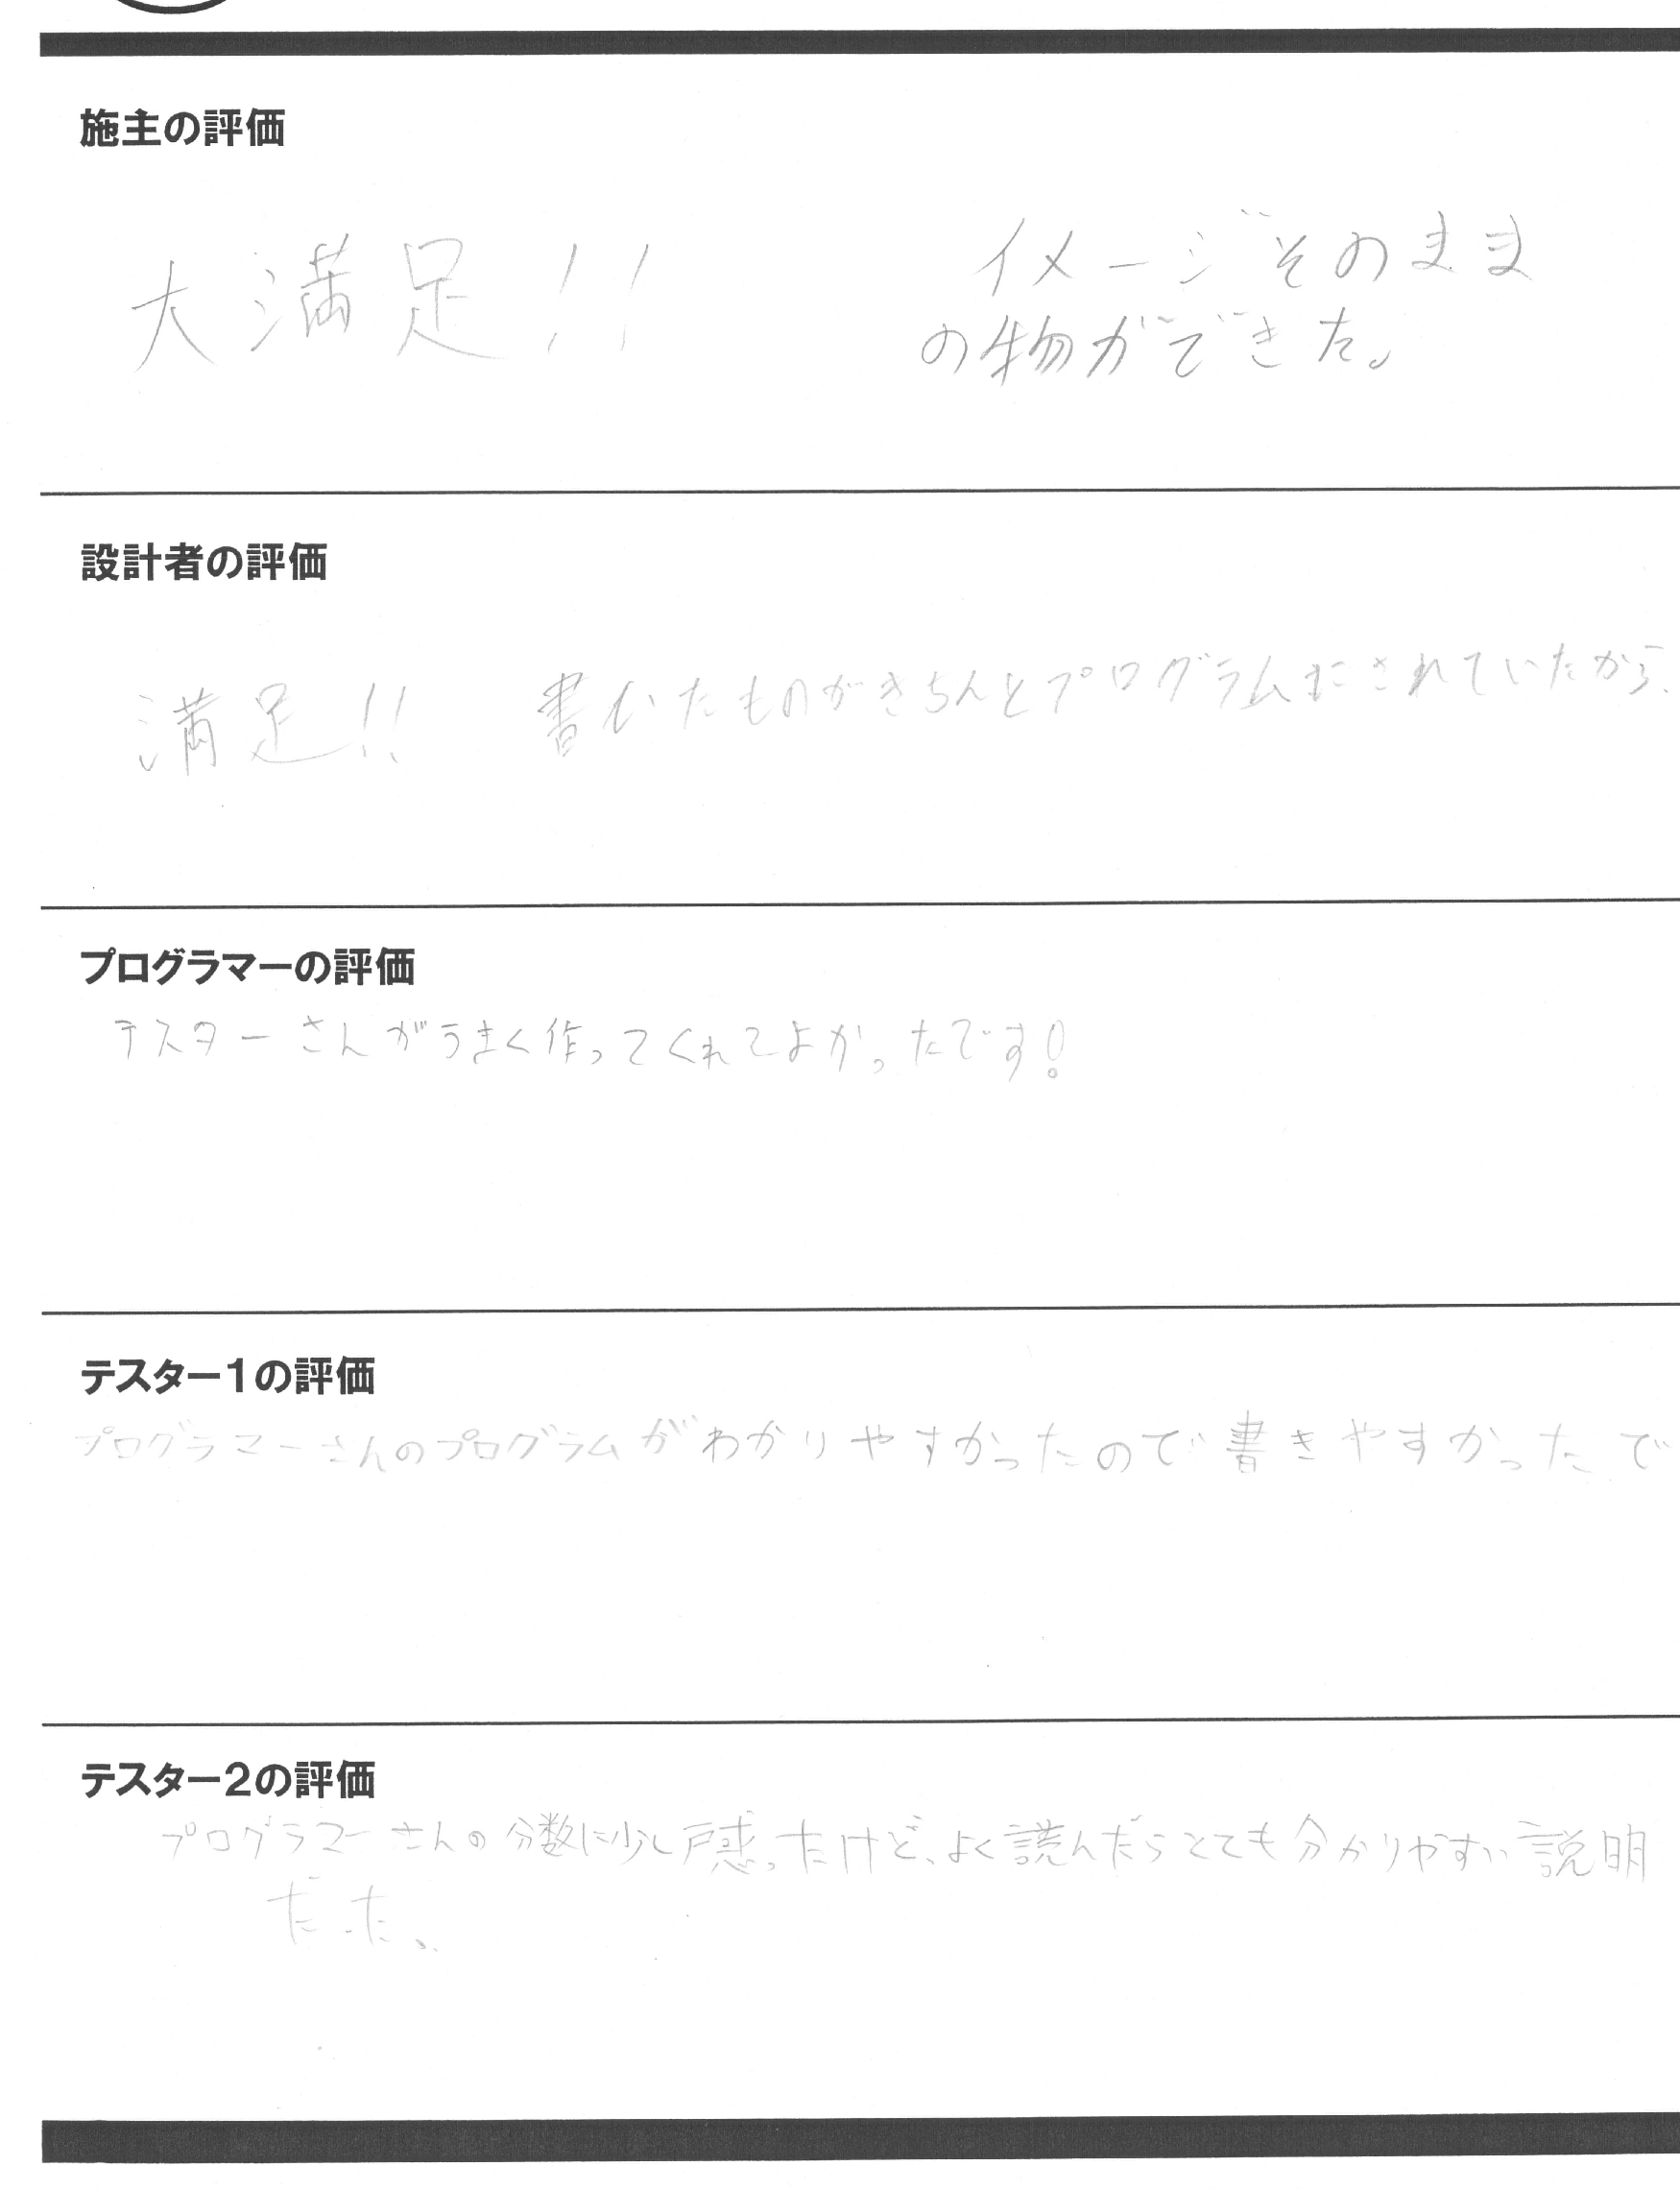 施主の評価
大満足!! イメージそのまま
の物ができた。
設計者の評価
満足!! 書いたものがきちんとプログラムにされていたから、
プログラマーの評価
テスターさんがうまく作ってくれてよかったです!
テスター1の評価
プログラマーさんのプログラムがわかりやすかったので書きやすかったで
テスター2の評価
プログラマーさんの分数に少し戸惑ったけど、よく読んだらとても分かりやすい説明
だった。